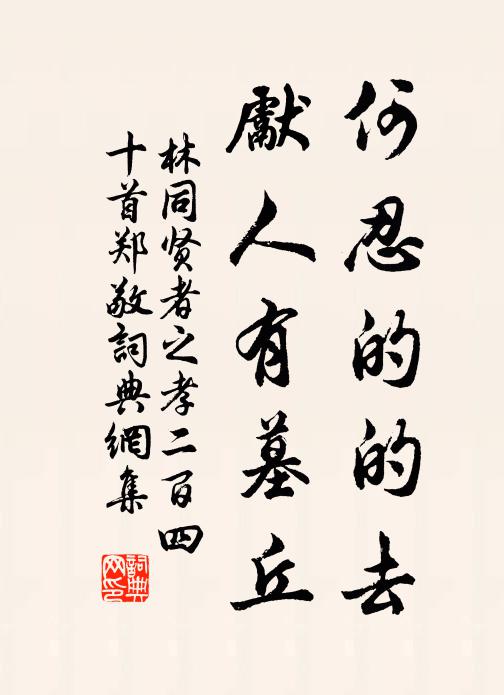 何忍的的去
獻人有墓丘
林同贤者之孝二百四
十首郑敬詞典網集
詞典
网印